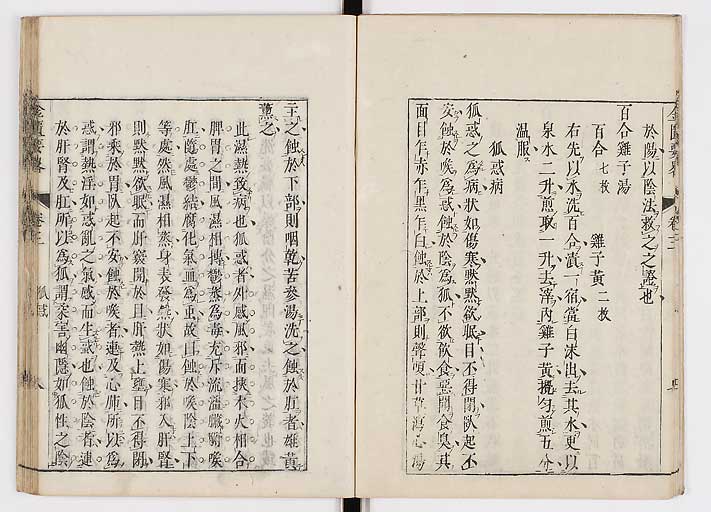 於陽以陰法救之之證也
百合雞子湯
百合 七枚 雞子黃 二枚
右先以水洗百合漬一宿當白沫出去其水更以
泉水二升煎取一升去滓內雞子黃攪勻煎五分
溫服
狐惑病
狐惑之為病狀如傷寒默默欲眠目不得閉臥起不
安蝕於喉為惑蝕於陰為狐不欲飲食惡聞食臭其
面目乍赤乍黑乍白蝕於上部則聲喝甘草瀉心湯
主之蝕於下部則咽乾苦參湯洗之蝕於肛者雄黃
薰之
此濕熱致病也狐惑者外感風邪而挾木火相合
脾胃之間風濕相摶鬱蒸為毒充斥流溢臟腑喉
肛隨處鬱結腐化氣 為 故口蝕於喉陰上下
等處然風濕相蒸身表發熱狀如傷寒邪入肝腎
則默默欲眠而肝竅開於目肝熱上壅目不得閉
邪乘於胃臥起不安蝕於喉者連及心肺所以為
惑謂熱淫如惑亂之氣感而生惑也蝕於陰者連
於肝腎及肛所以為狐謂家害幽隱如狐性之陰
金匱要略 卷三
金匱要略 卷三 狐惑